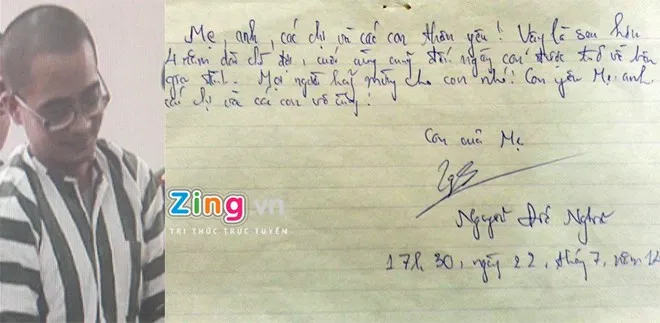 Mẹ, anh, các chị và các con thân yêu! Vậy là sau hơn
4 năm dài chờ đợi, cuối cùng cũng đến ngày con được trở về bên
gia đình. Mọi người hãy mừng cho con nhé! Con yêu Mẹ, anh,
các chị và các con vô cùng!
Con của Mẹ
Nguyễn Đức Nghĩa
17h 30, ngày 22, tháng 7, năm 14
Zing.vn
TRI THỨC TRỰC TUYẾN